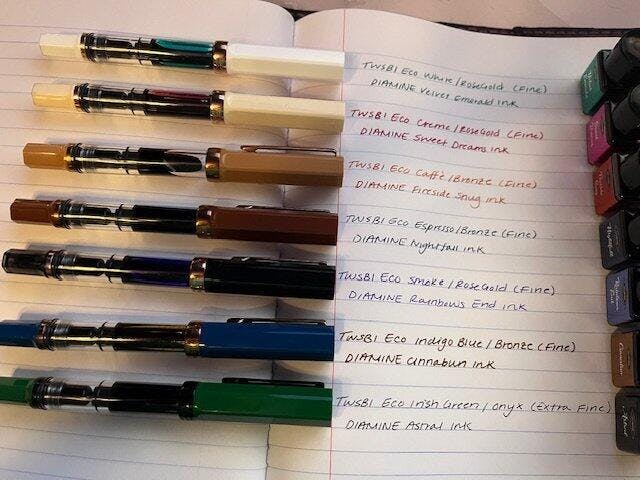 TWSBI Eco White/RoseGold (Fine)
DIAMINE Velvet Emerald ink
TWSBI Eco Creme/RoseGold (Fine)
DIAMINE Sweet Dreams ink
TWSBI Eco Caffè/Bronze (Fine)
DIAMINE Fireside Snug ink
TWSBI Eco Espresso/Bronze (Fine)
DIAMINE Nightfall ink
TWSBI Eco Smoke/RoseGold (Fine)
DIAMINE Rainbows End ink
TWSBI Eco Indigo Blue/Bronze (Fine)
DIAMINE Cinnabun ink
TWSBI Eco Irish Green/Onyx (Extra Fine)
DIAMINE Astral ink